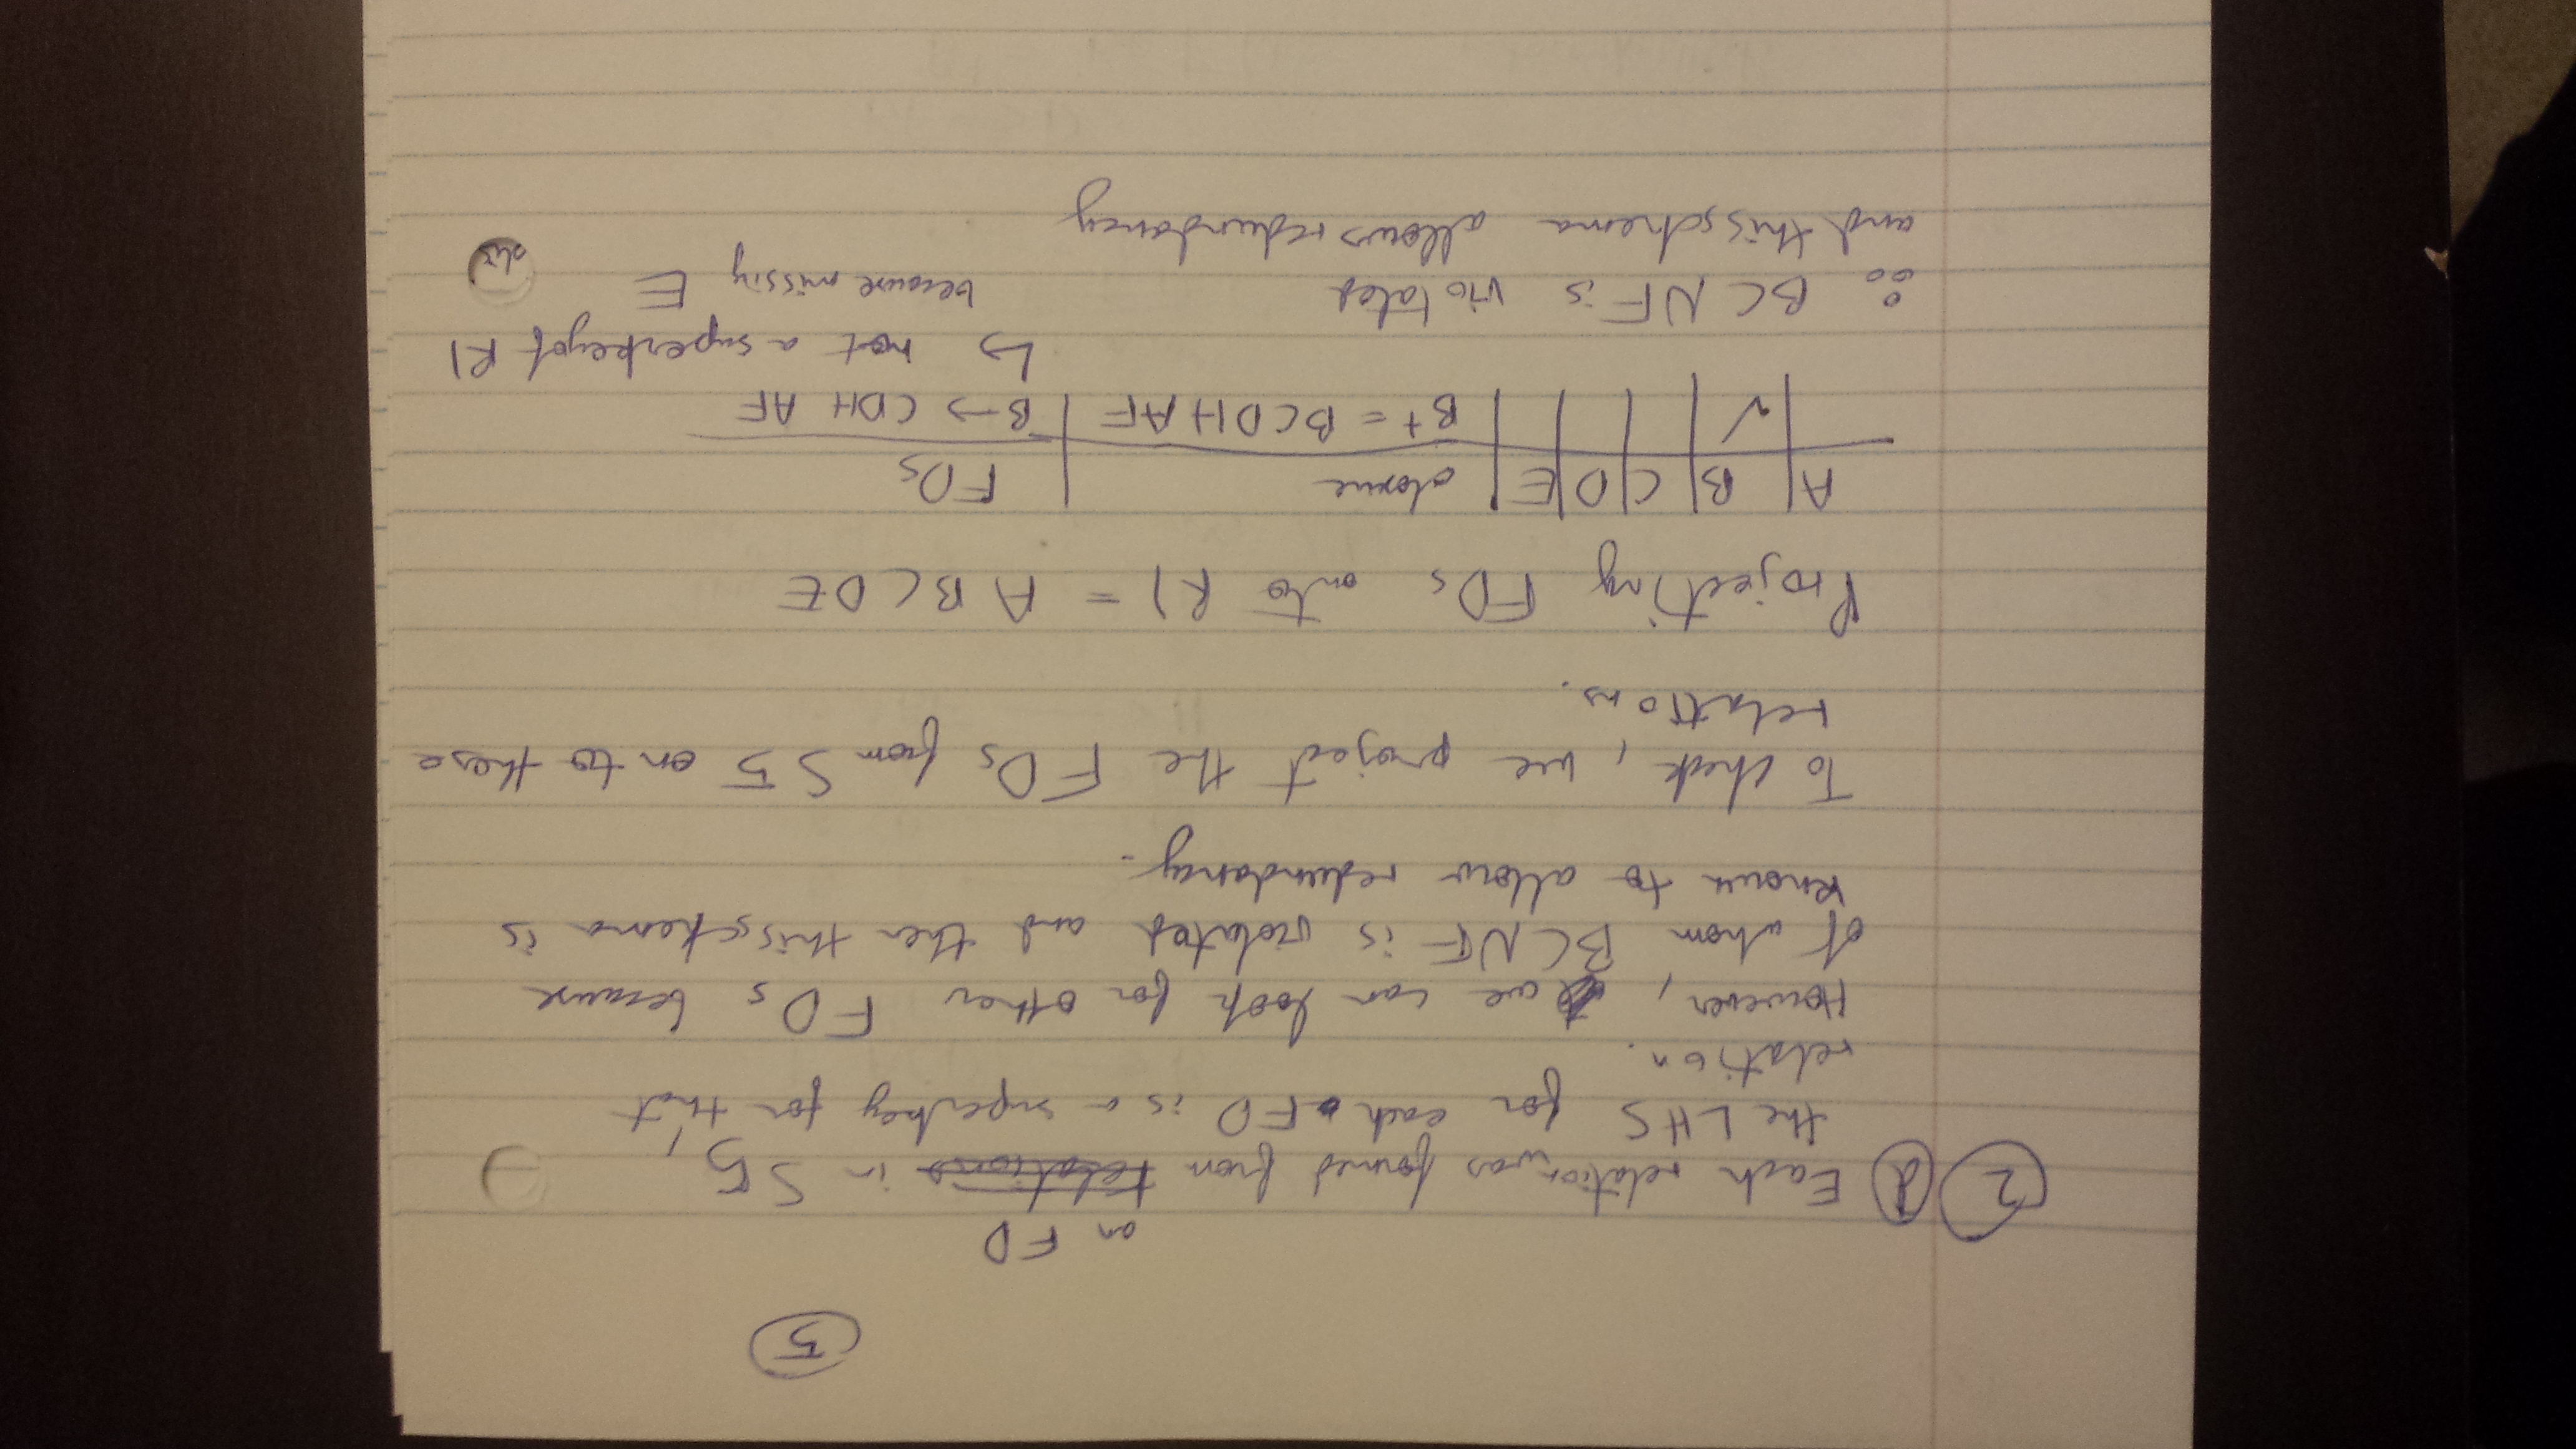 5
an FD
2 d Each relation was formed from relations in S5,
the LHS for each FD is a superkey for that
relation.
However, we can look for other FDs because
of whom BCNF is violated and then this schema is
known to allow redundancy.
To check, we project the FDs from S5 on to these
relations.
Projecting FDs onto R1 = ABCDE
A B C D E closure FDs
✓ B+ = BCDHAF B → CDH AF
↳ not a superkey of R1
∴ BCNF is violated because missing E
and this schema allows redundancy